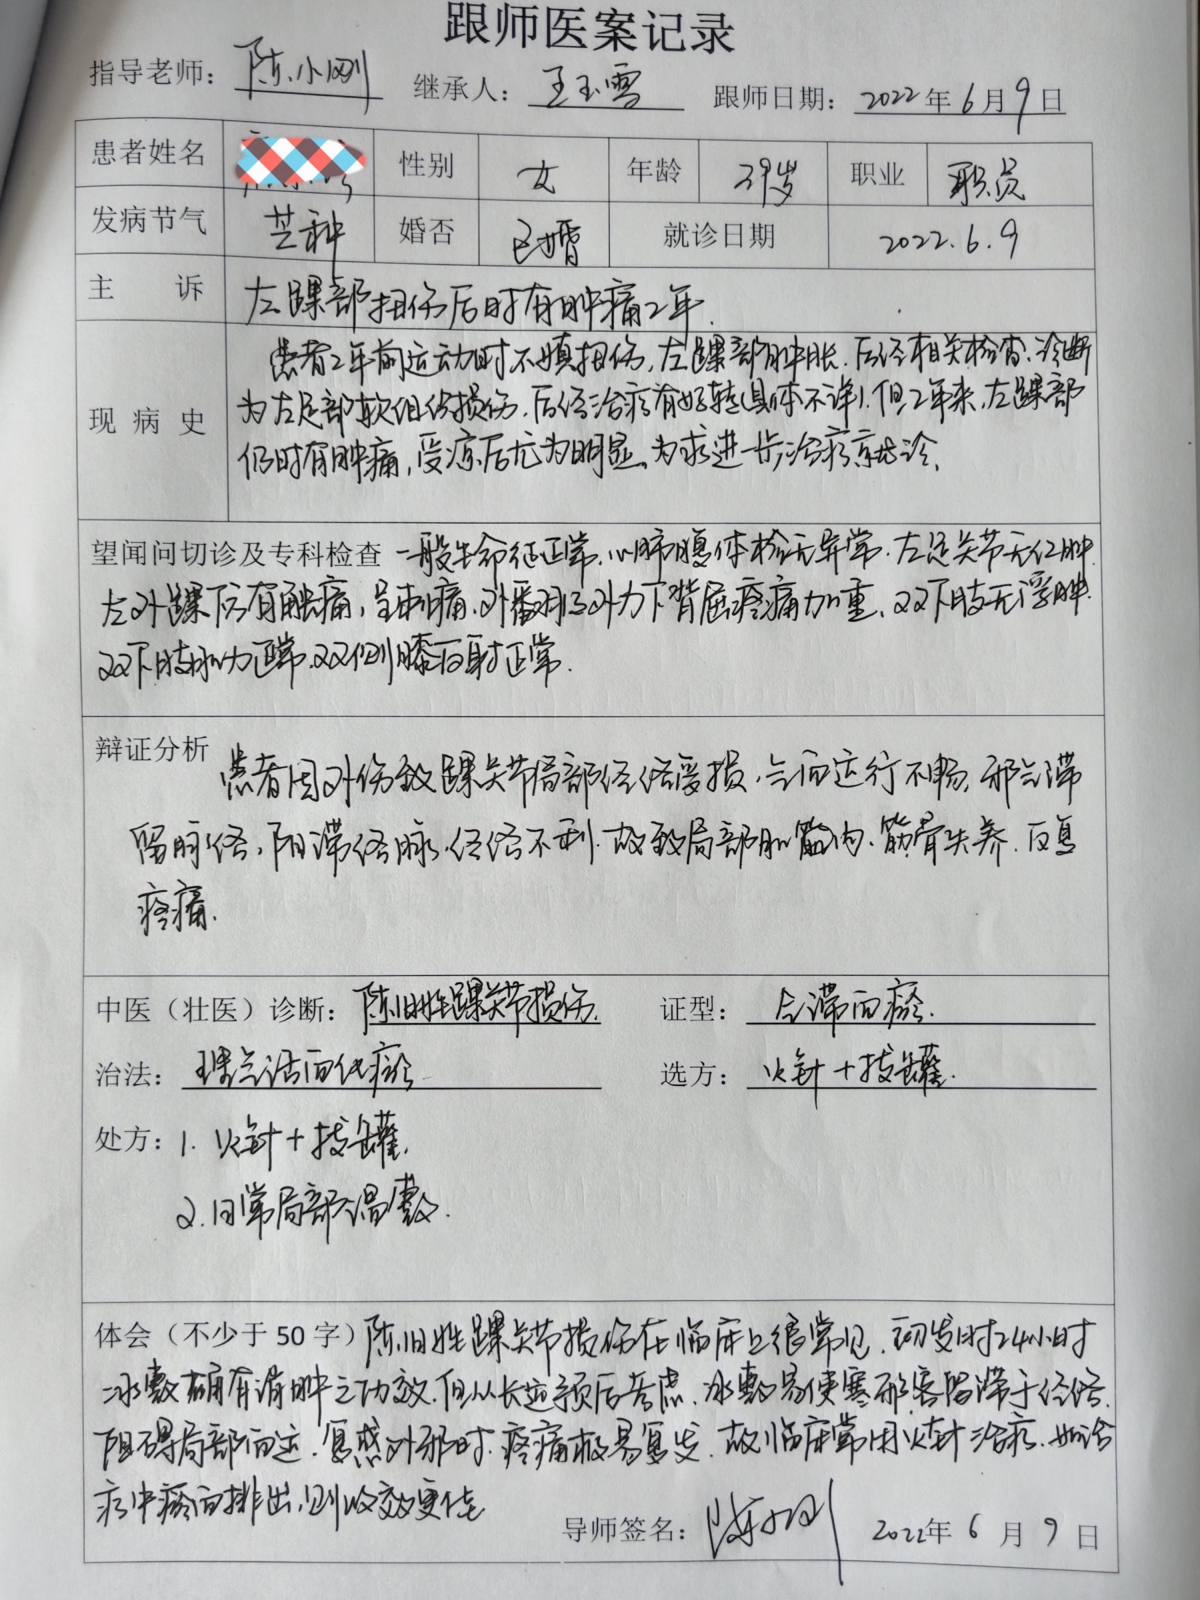 跟师医案记录
指导老师：陈小刚 继承人：王玉雪 跟师日期：2022年6月9日
患者姓名 性别 女 年龄 39岁 职业 职员
发病节气 芒种 婚否 已婚 就诊日期 2022.6.9
主诉 左踝部扭伤后时有肿痛2年.
患者2年前运动时不慎扭伤，左踝部肿胀.后经相关检查.诊断
现病史 为左足部软组织损伤.后经治疗有好转(具体不详).但2年来，左踝部
仍时有肿痛，受凉后尤为明显.为求进一步治疗来就诊.
望闻问切诊及专科检查 一般生命征正常.心肺腹体检无异常.左足关节无红肿.
左外踝下方有触痛，呈刺痛.外翻时及外力下背屈疼痛加重.双下肢无浮肿.
双下肢肌力正常.双侧膝反射正常.
辩证分析 患者因外伤致踝关节局部经络受损，气血运行不畅，邪气滞
留脉络，阻滞经脉，经络不利.故致局部肌筋肉、筋骨失养.反复
疼痛.
中医（壮医）诊断：陈旧性踝关节损伤. 证型：气滞血瘀.
治法：理气活血化瘀 选方：火针+拔罐.
处方：1.火针+拔罐.
2.日常局部温敷.
体会（不少于50字）陈旧性踝关节损伤在临床上很常见.初发时24小时
冰敷确有消肿之功效.但从长远预后考虑.冰敷易使寒邪客阻滞于经络.
阻碍局部血运.复感外邪时.疼痛极易复发.故临床常用火针治疗.如治
疗中瘀血排出,则收效更佳
导师签名：陈小刚 2022年6月9日